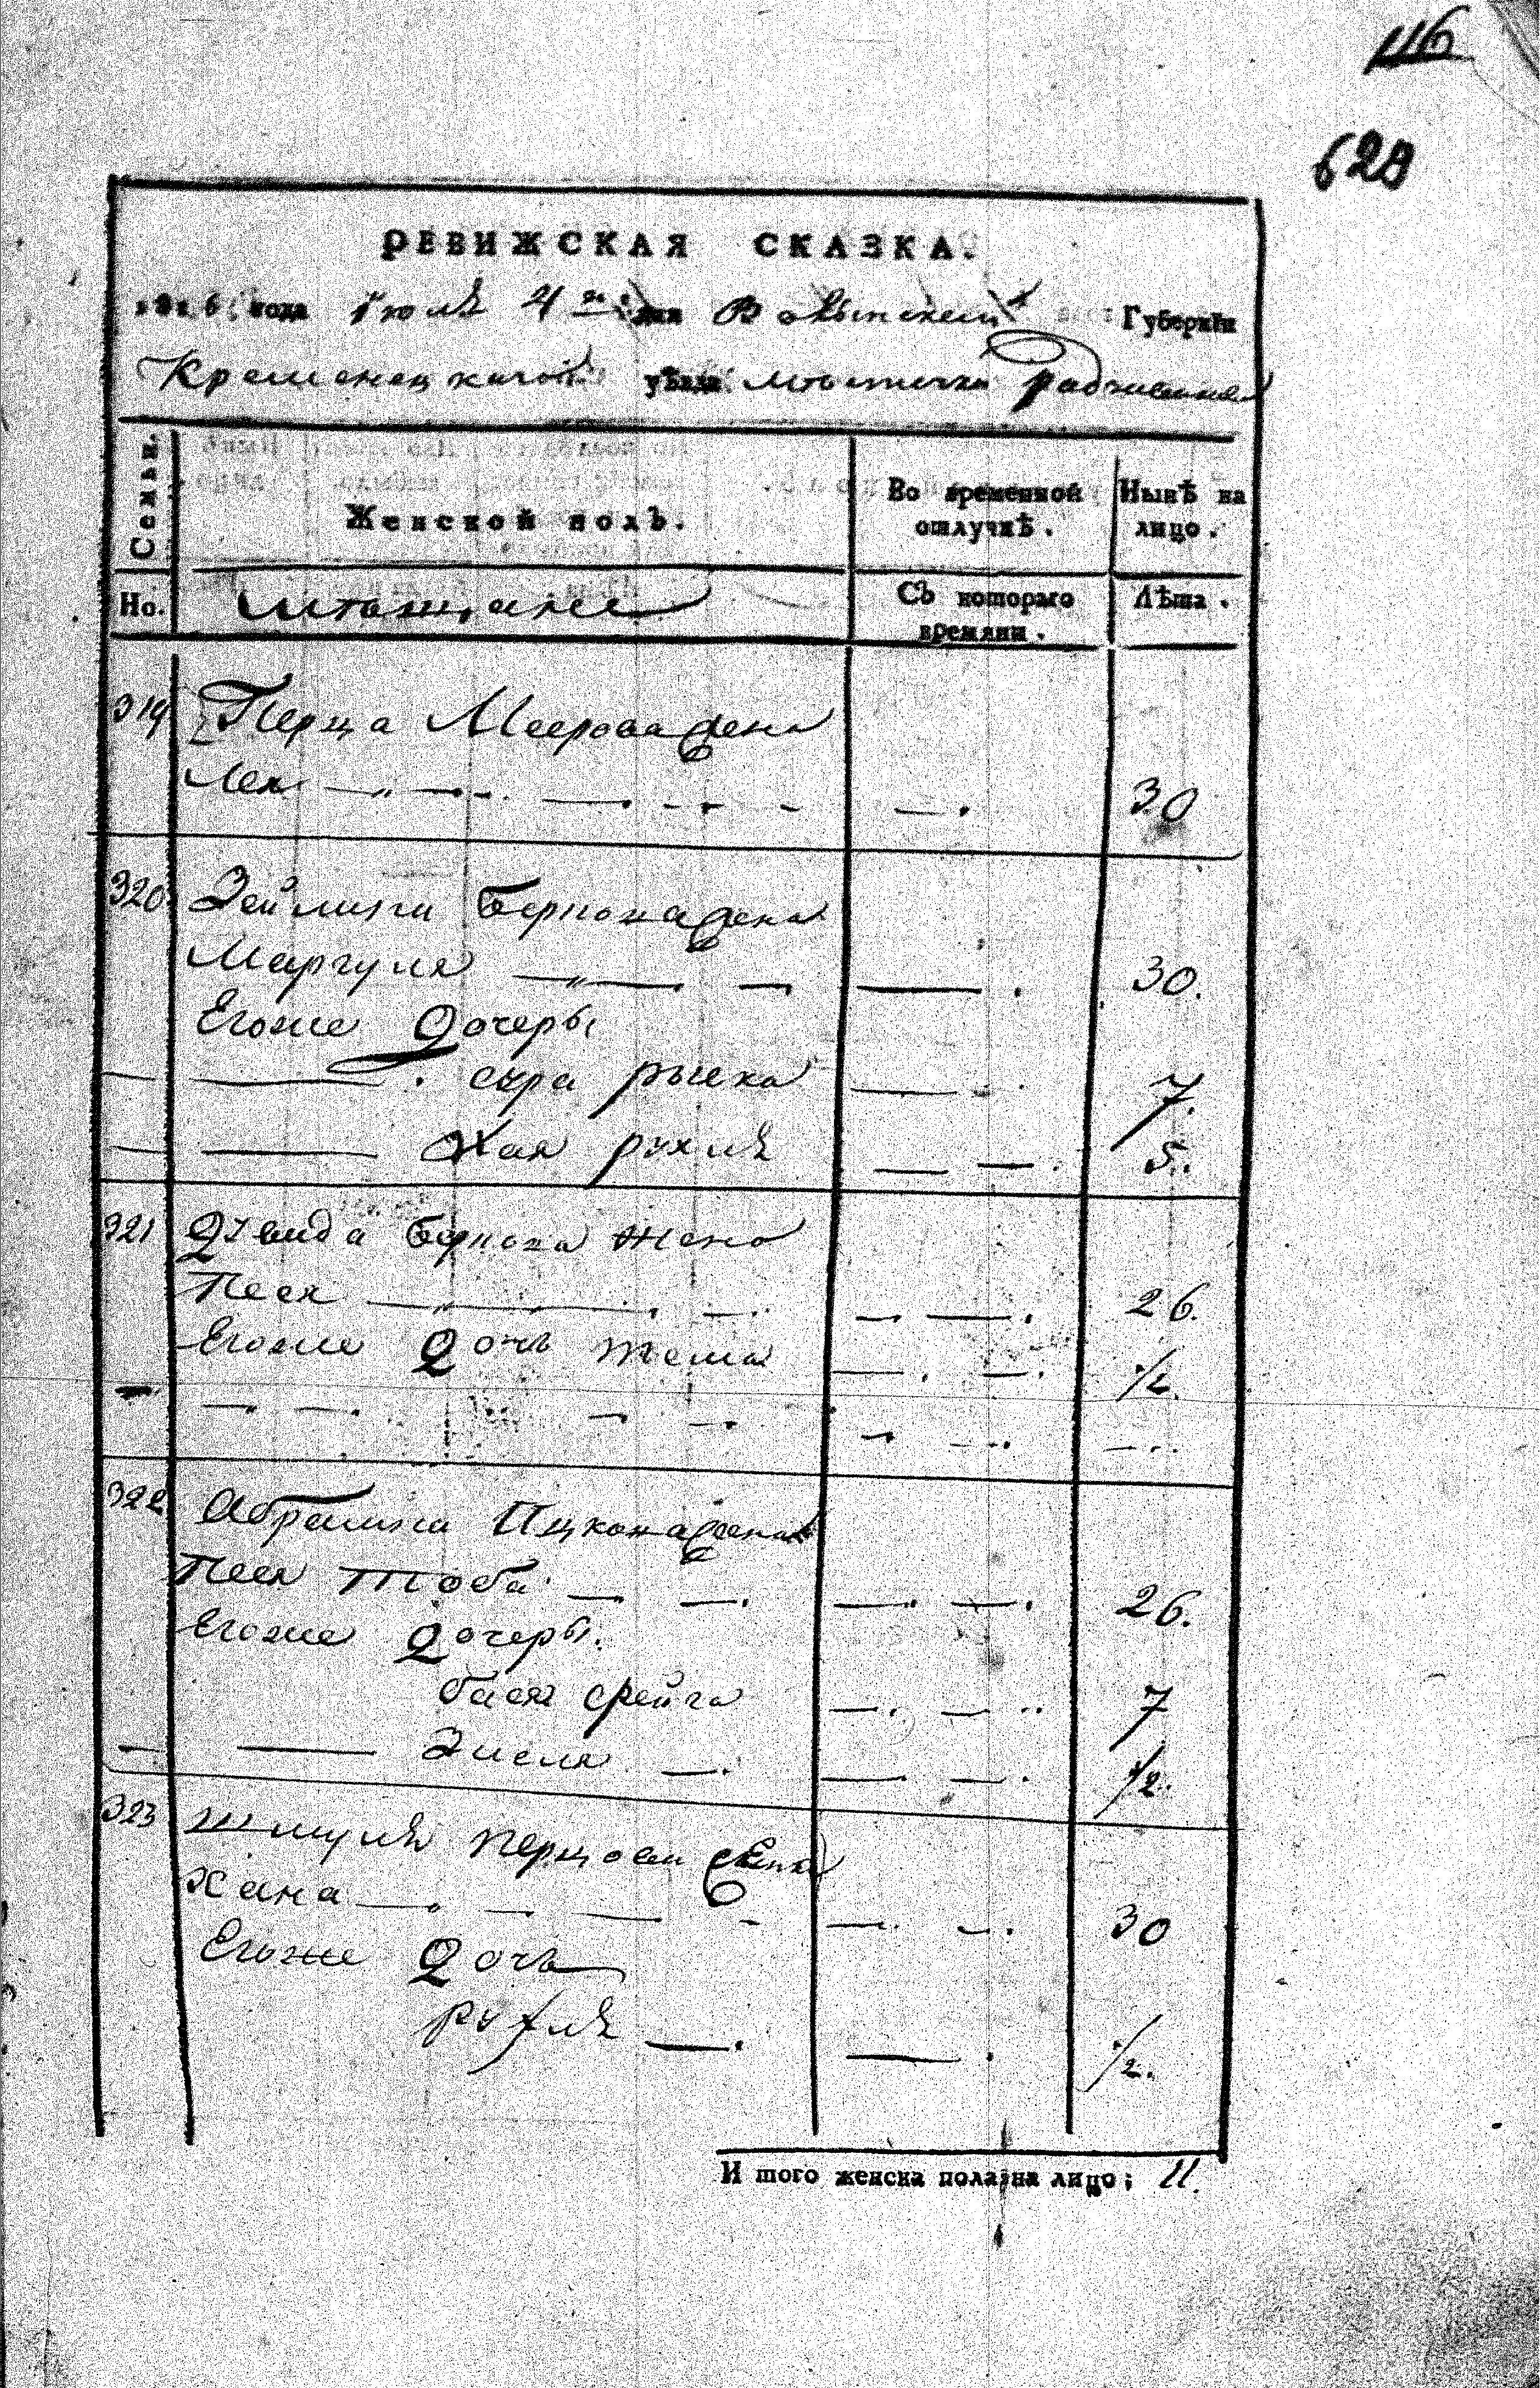 116
629
РЕВИЖСКАЯ СКАЗКА.
1816 года Іюля 4го дня Волынской Губернїи
Кременецкаго уѣзда мѣстечка
Семьи.
Женской полъ.
Во временной отлучкѣ.
Нынѣ на лицо.
Но.
мѣщане
Съ котораго времяни.
Лѣта.
319 Перца Меерова жена
Лея — — — 30
320 Зейлига Беркова жена
Маргуля — — — 30.
Егоже дочеры
— — сура рыска — 7.
— — хая рухля — — 5.
321 Давида Беркова жена
Песя — — — — 26.
Егоже дочь — — 1/2
— — — — — — — —
322 Абрамка Ицкова жена
Песя тоба — — — — 26.
Егоже дочеры.
бася фейга — — 7
— — Зисля — — — 1/2.
323 Шмуля перцова жена
Хана — — — — — — 30
Егоже дочь
рухля — — 1/2.
И того женска пола на лицо; 11.